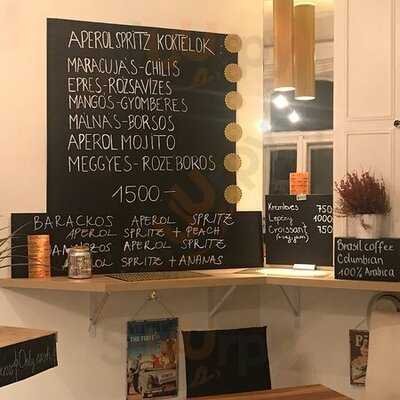 APEROLSPRITZ KOKTÉLOK:
MARACUJÁS-CHILIS
EPRES-RÓZSAVIZES
MANGÓS-GYÖMBÉRES
MÁLNÁS-BORSOS
APEROL MOJITO
MEGGYES-ROZÉBOROS
1500-
BARACKOS APEROL SPRITZ
APEROL SPRITZ + PEACH
ANANÁSZOS APEROL SPRITZ
APEROL SPRITZ + ANANAS
Krémleves 750
Lepény 1000
Croissant 750
Brasil coffee
Columbian
100% Arabica
Only cash!